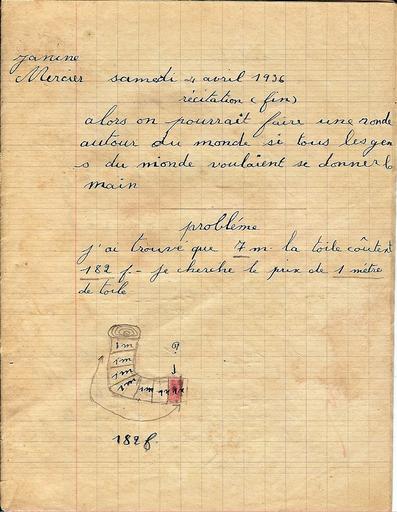 Janine
Mercier samedi 4 avril 1936
récitation (fin)
alors on pourrait faire une ronde
autour du monde si tous les gen
s du monde voulaient se donner la
main
probléme
j'ai trouvé que 7 m la toile coûtent
182 f. - je cherche le prix de 1 mètre
de toile
?
1 m
1 m
1 m
1 m
1 m
182 f.